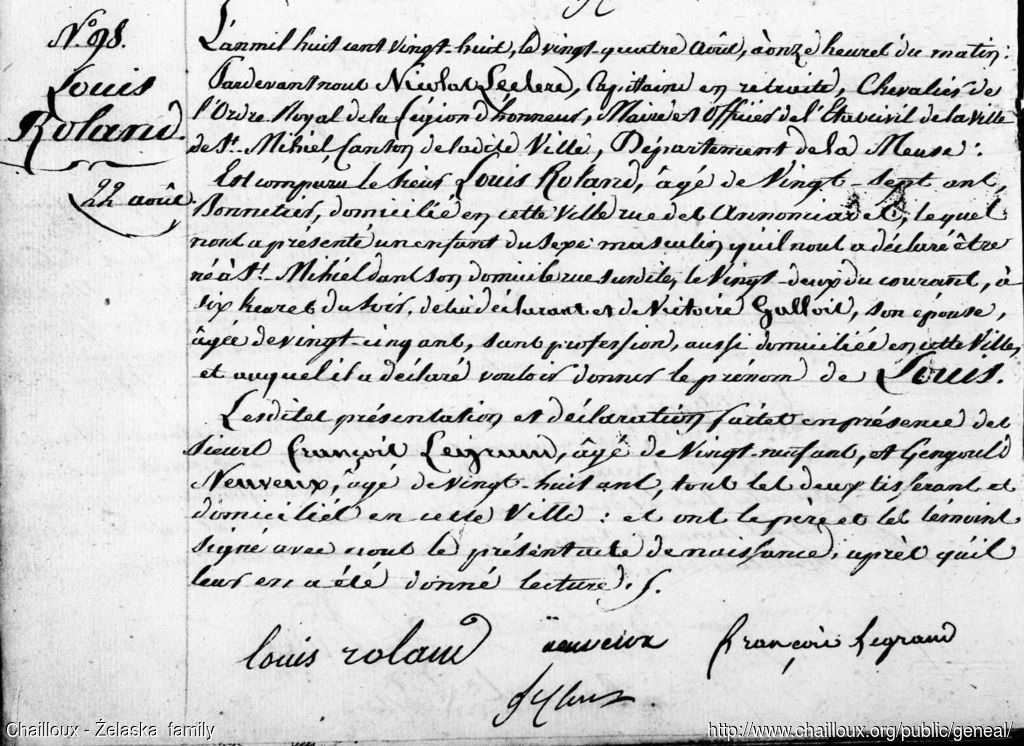 N.º 98.
Louis
Roland.
22 août.
L'an mil huit cent vingt-huit, le vingt-quatre Août, à onze heures du matin:
Pardevant nous Nicolas Leclerc, Capitaine en retraite, Chevalier de
l'Ordre Royal de la Légion d'honneur, Maire et Officier de l'Etat civil de la ville
de St. Mihiel, Canton de ladite Ville, Département de la Meuse:
Est comparu le sieur Louis Roland, âgé de Vingt-sept ans,
Bonnetier, domicilié en cette Ville rue des Annonciades, lequel
nous a présenté un enfant du sexe masculin, qu'il nous a déclaré être
né à St. Mihiel dans son domicile rue susdite, le Vingt-deux du courant, à
six heures du soir, de lui déclarant et de Victoire Gallois, son épouse,
âgée de vingt-cinq ans, sans profession, aussi domiciliée en cette Ville,
et auquel il a déclaré vouloir donner le prénom de Louis.
Lesdites présentation et déclaration faites en présence des
sieurs François Legrand, âgé de Vingt-neuf ans, et Gengould
Neuveux, âgé de vingt-huit ans, tous les deux tisserans et
domiciliés en cette Ville: et ont le père et les témoins
signé avec nous le présent acte de naissance, après qu'il
leur en a été donné lecture.
louis roland neuveux françois legrand
Chailloux - Żelaska family
http://www.chailloux.org/public/geneal/